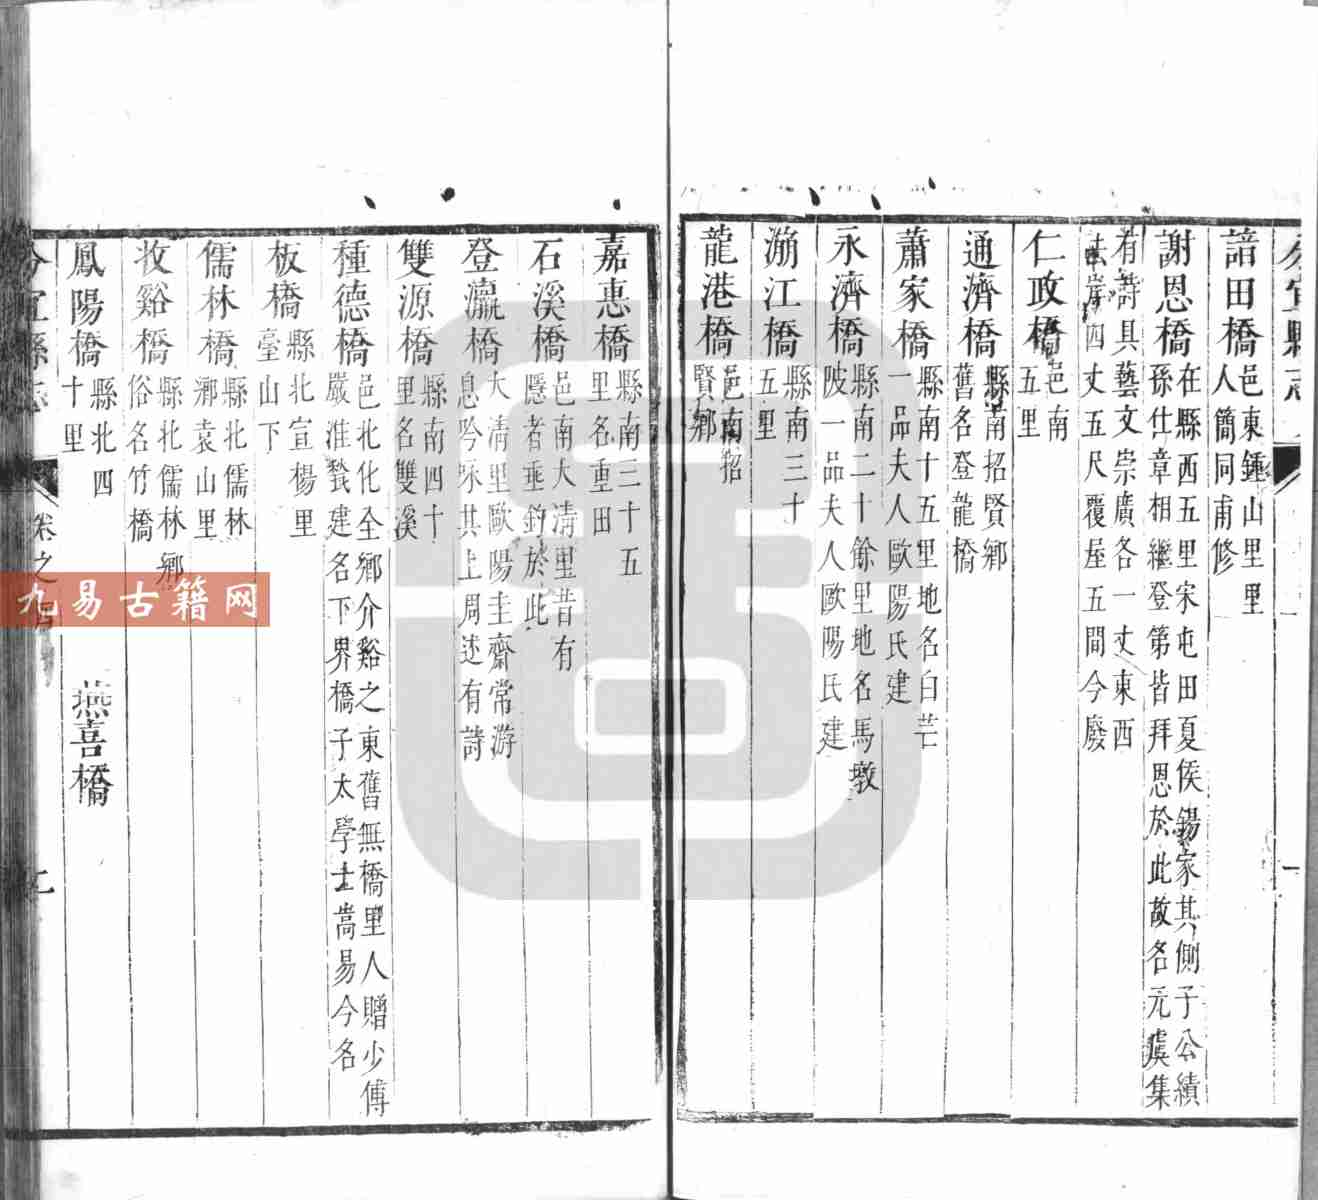 分宜縣志
諳田橋邑東鍾山里里人簡同甫修
謝恩橋在縣西五里宋屯田夏侯錫家其側子公績孫仕章相繼登第皆拜恩於此故名元虞集
有詩具藝文崇廣各一丈東西岸四丈五尺覆屋五間今廢
仁政橋邑南五里
通濟橋縣南招賢鄉舊名登龍橋
蕭家橋縣南十五里地名白芒一品夫人歐陽氏建
永濟橋縣南二十餘里地名馬墩陂一品夫人歐陽氏建
漰江橋縣南三十五里
龍港橋邑南招賢鄉
嘉惠橋縣南三十五里名重田
石溪橋邑南大清里昔有隱者垂釣於此
登瀛橋大清里歐陽圭齋常游息吟咏其上周述有詩
雙源橋縣南四十里名雙溪
種德橋邑北化全鄉介谿之東舊無橋里人贈少傅嚴淮甃建名下界橋子太學士嵩易今名
板橋縣北宣楊里臺山下
儒林橋縣北儒林鄉袁山里
牧谿橋縣北儒林鄉俗名竹橋
鳳陽橋縣北四十里 燕喜橋
分宜縣志 卷之四 二
九易古籍网